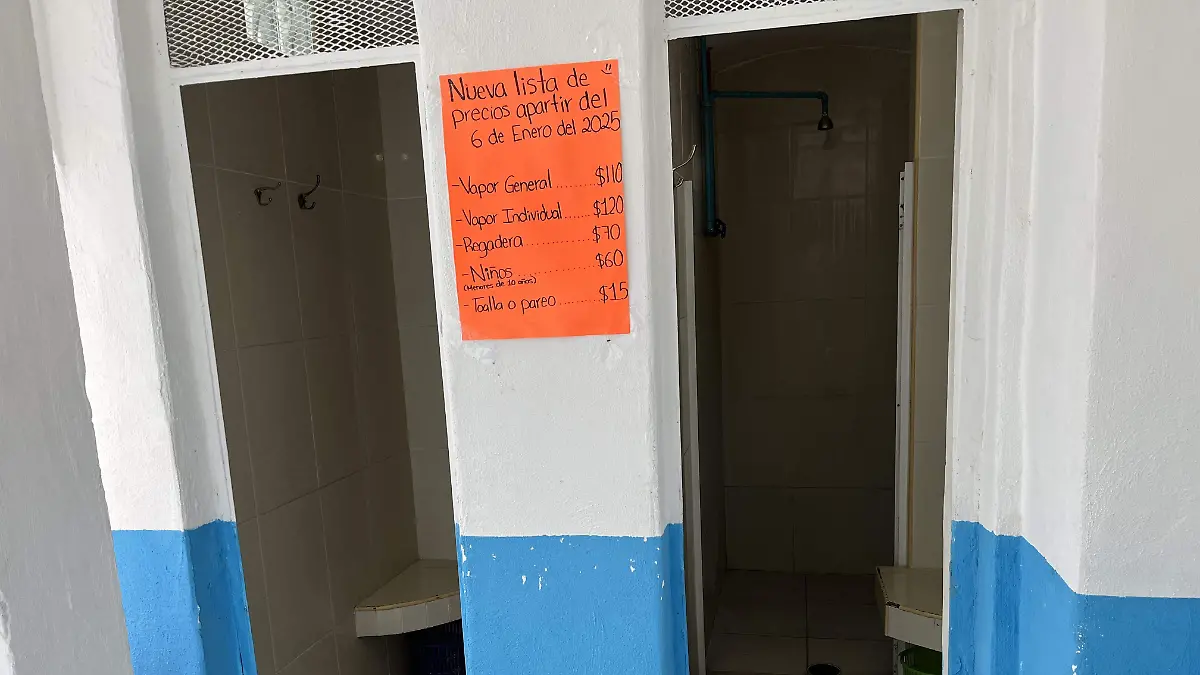 Nueva lista de
precios apartir del
6 de Enero del 2025
-Vapor General........$110
-Vapor Individual......$120
-Regadera............$70
-Niños..............$60
(Menores de 10 años)
-Toalla o pareo........$15